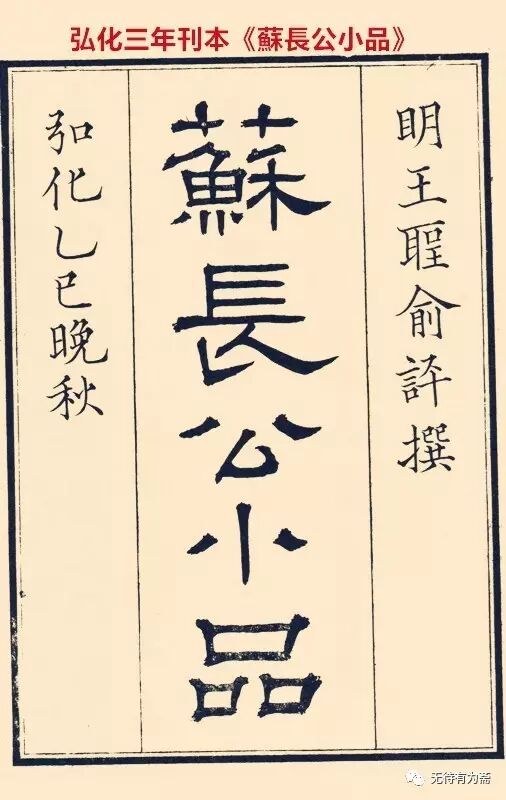 弘化三年刊本《蘇長公小品》
明王聖俞評撰
蘇長公小品
弘化乙巳晚秋
无待有为斋